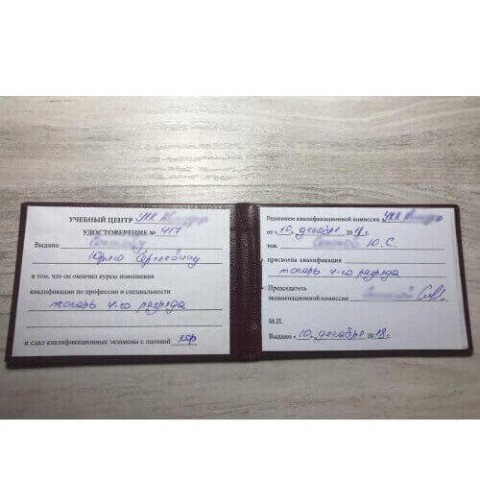 УЧЕБНЫЙ ЦЕНТР УПК
УДОСТОВЕРЕНИЕ № 417
Выдано
Юрию Сергеевичу
в том, что он окончил курсы повышения
квалификации по профессии и специальности
токарь 4-го разряда
и сдал квалификационные экзамены с оценкой хор
Решением квалификационной комиссии УПК
от «10» декабря 2018 г.
тов. Ю.С.
присвоена квалификация
токарь 4-го разряда
Председатель
экзаменационной комиссии
М.П.
Выдано «10» декабря 2018 г.